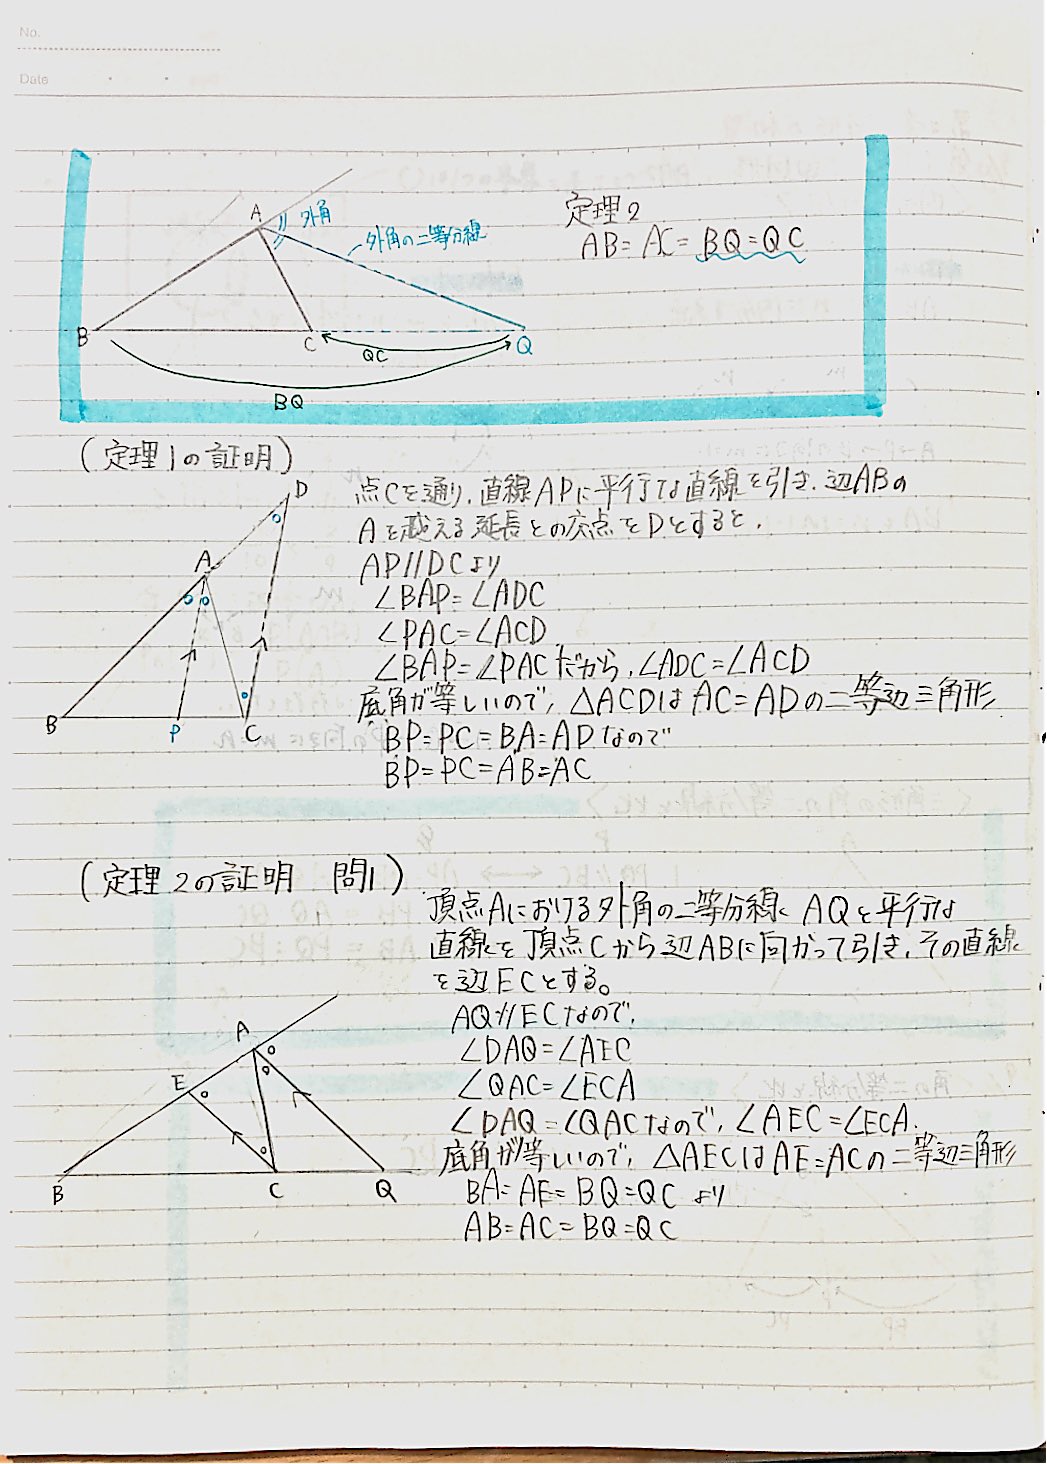 No.
Date
A
外角
外角の二等分線
B
C
Q
QC
BQ
定理2
AB=AC=BQ=QC
(定理1の証明)
D
A
B
P
C
点Cを通り、直線APに平行な直線を引き、辺ABの
Aを越える延長との交点をDとすると、
AP//DCより
∠BAP=∠ADC
∠PAC=∠ACD
∠BAP=∠PACだから、∠ADC=∠ACD
底角が等しいので、△ACDはAC=ADの二等辺三角形
BP=PC=BA=ADなので
BP=PC=AB=AC
(定理2の証明 問1)
頂点Aにおける外角の二等分線 AQと平行な
直線を頂点Cから辺ABに向かって引き、その直線
を辺ECとする。
AQ//ECなので、
∠DAQ=∠AEC
∠QAC=∠ECA
∠DAQ=∠QACなので、∠AEC=∠ECA.
底角が等しいので、△AECはAE=ACの二等辺三角形
BA=AE=BQ=QCより
AB=AC=BQ=QC
A
E
B
C
Q